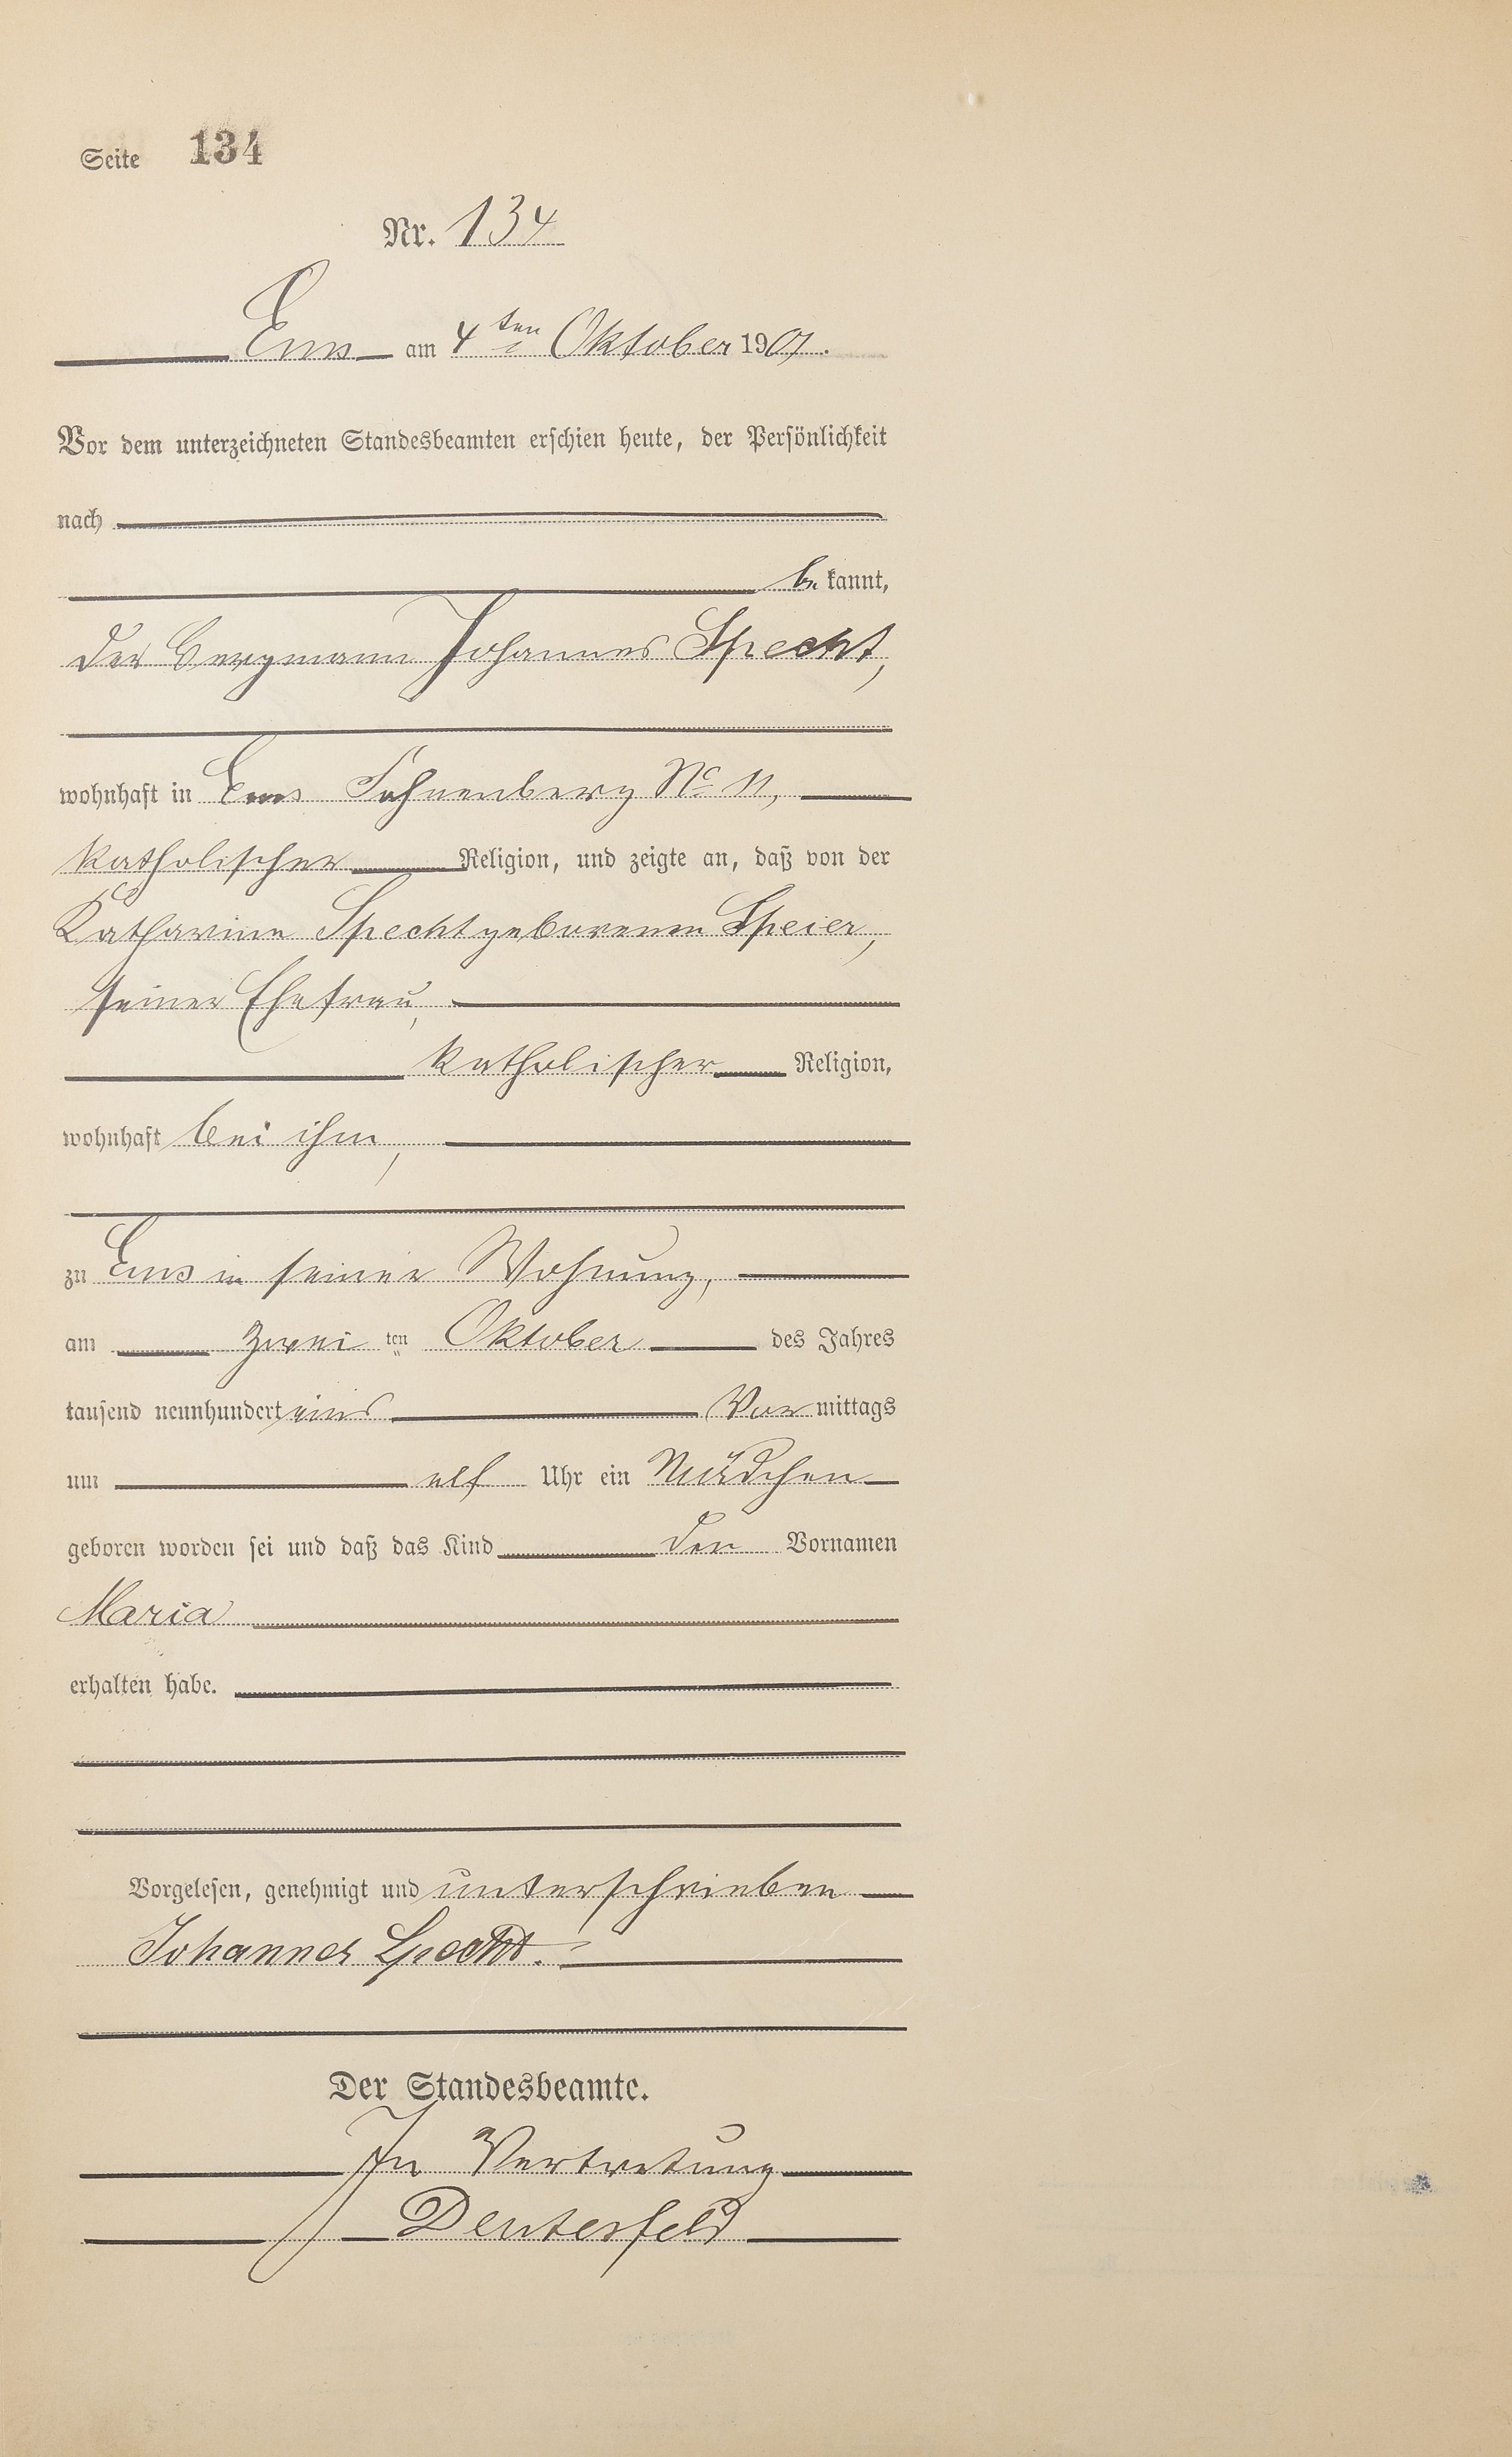 Seite 134
Nr. 134
Ems am 4ten Oktober 1901.
Vor dem unterzeichneten Standesbeamten erschien heute, der Persönlichkeit
nach
be kannt,
der Bergmann Johannes Specht,
wohnhaft in Ems Fahnenberg No 11,
katholischer Religion, und zeigte an, daß von der
Katharina Specht geborenen Speier,
seiner Ehefrau,
katholischer Religion,
wohnhaft bei ihm,
zu Ems in seiner Wohnung,
am zwei ten Oktober des Jahres
tausend neunhundert eins Vor mittags
um elf Uhr ein Mädchen
geboren worden sei und daß das Kind den Vornamen
Maria
erhalten habe.
Vorgelesen, genehmigt und unterschrieben
Johannes Specht.
Der Standesbeamte.
In Vertretung
Deutesfeld